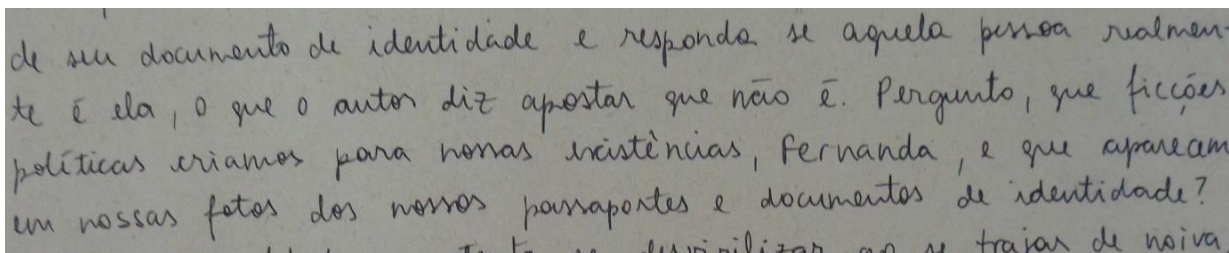 de seu documento de identidade e responda se aquela pessoa realmen-
te é ela, o que o autor diz apostar que não é. Pergunto, que ficções
políticas criamos para nossas existências, Fernanda, e que apareçam
em nossas fotos dos nossos passaportes e documentos de identidade?
se desvirilizar ao se trajar de noiva